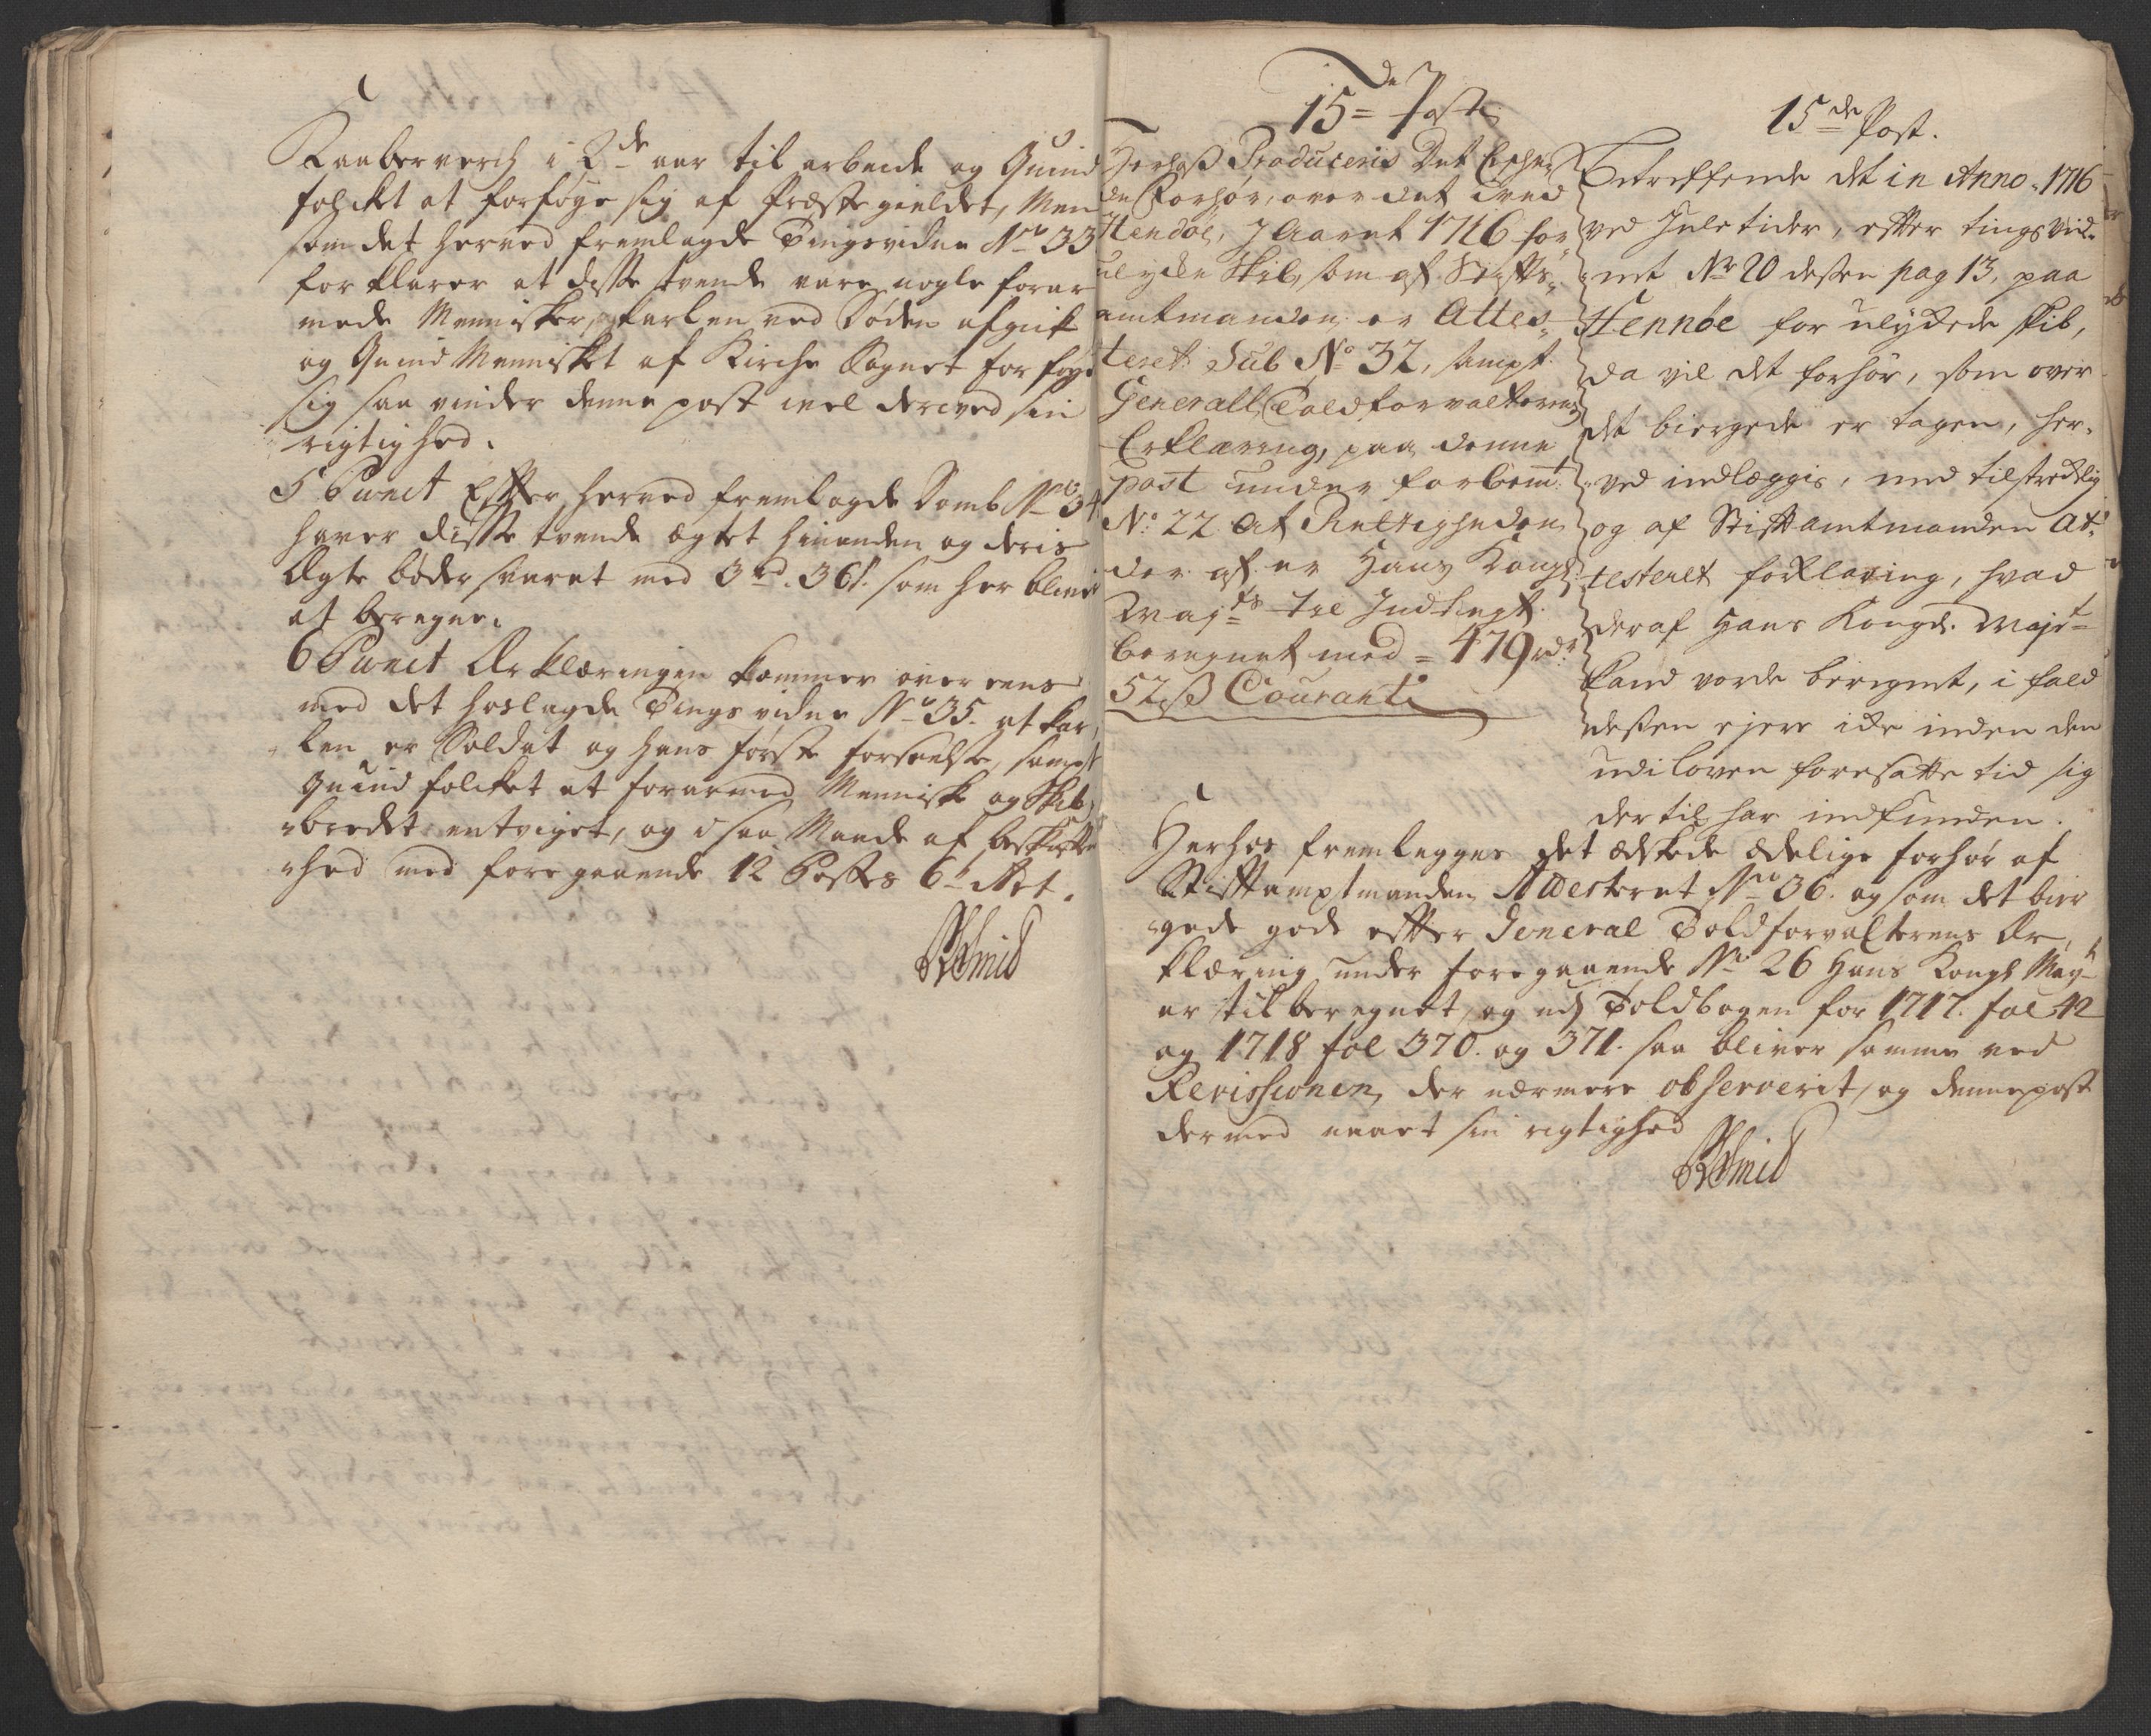 Kaaberverch i 2de aar til arbeide og Quind
folcket at forføye sig af Præste gieldet, Men
som det herved fremlagde Tingsvidne No 33
forklarer at disse tvende vare nogle forar
mede Mennisker, karlen ved Døden afgick
og Quind Mennisket af Kirche Sognet forføyd
sig saa vinder denne post vel derved sin
rigtighed.
5 Punct Efter herved fremlagde Domb No 34
haver disse tvende ægtet hinanden og deris
Ægte bøder svaret med 3 rd. 36 s. som her bliver
at beregne.
6 Punct Erklæringen kommer over eens
med det hoslagde Tings vidne No 35. at kar,
len er Soldat og hans første forseelse, sampt
quind folcket et forarmed Menniske og Skil,
bredet entviget, og i saa Maade af beskaffen
hed med foregaaende 12 Postes 6te Art.
Schmid
15de Post
Herhoß Produceris Det
de Forhør, over det ved
Hendøe, I Aaret 1716 for
ulyckte Skib, som af Stifts
amtmanden er Attes
teret Sub No 32, sampt
Generall Toldforvalterens
Erklæring, paa denne
post under forbemt
No 22 At Rettigheden
der af er Hans Kongl.
Mayts til Indtegt
beregnet med = 479 rdr
52 ß Courant
15de Post.
Betreffende det in Anno 1716
ved Jule tider, efter tings vid
net No 20 dessen pag 13, paa
Hennøe for ulyckede skib,
da vil det forhør, som over
det biergede er tagen, her
ved indlæggis, med tilstreckelig
og af Stiftamtmanden At
testeret forklaring, hvad
deraf Hans Kongl. Mayt
kand vorde beregnet, i fald
dessen ejere icke inden den
udi loven foresatte tid sig
dertil har indfunden.
Herhos fremlegges det ædskede ædelige forhør af
Stiftamptmanden Attesteret No 36. og som det bier
gede gods efter General Toldforvalterens Er,
klæring under foregaaende No 26 Hans Kongl May
er tilberegnet, og udj Toldbogen for 1717. fol 42
og 1718 fol 370. og 371. saa bliver samme ved
Revissionen, der nærmere observerit, og denne post
dermed naaet sin rigtighed
Schmid